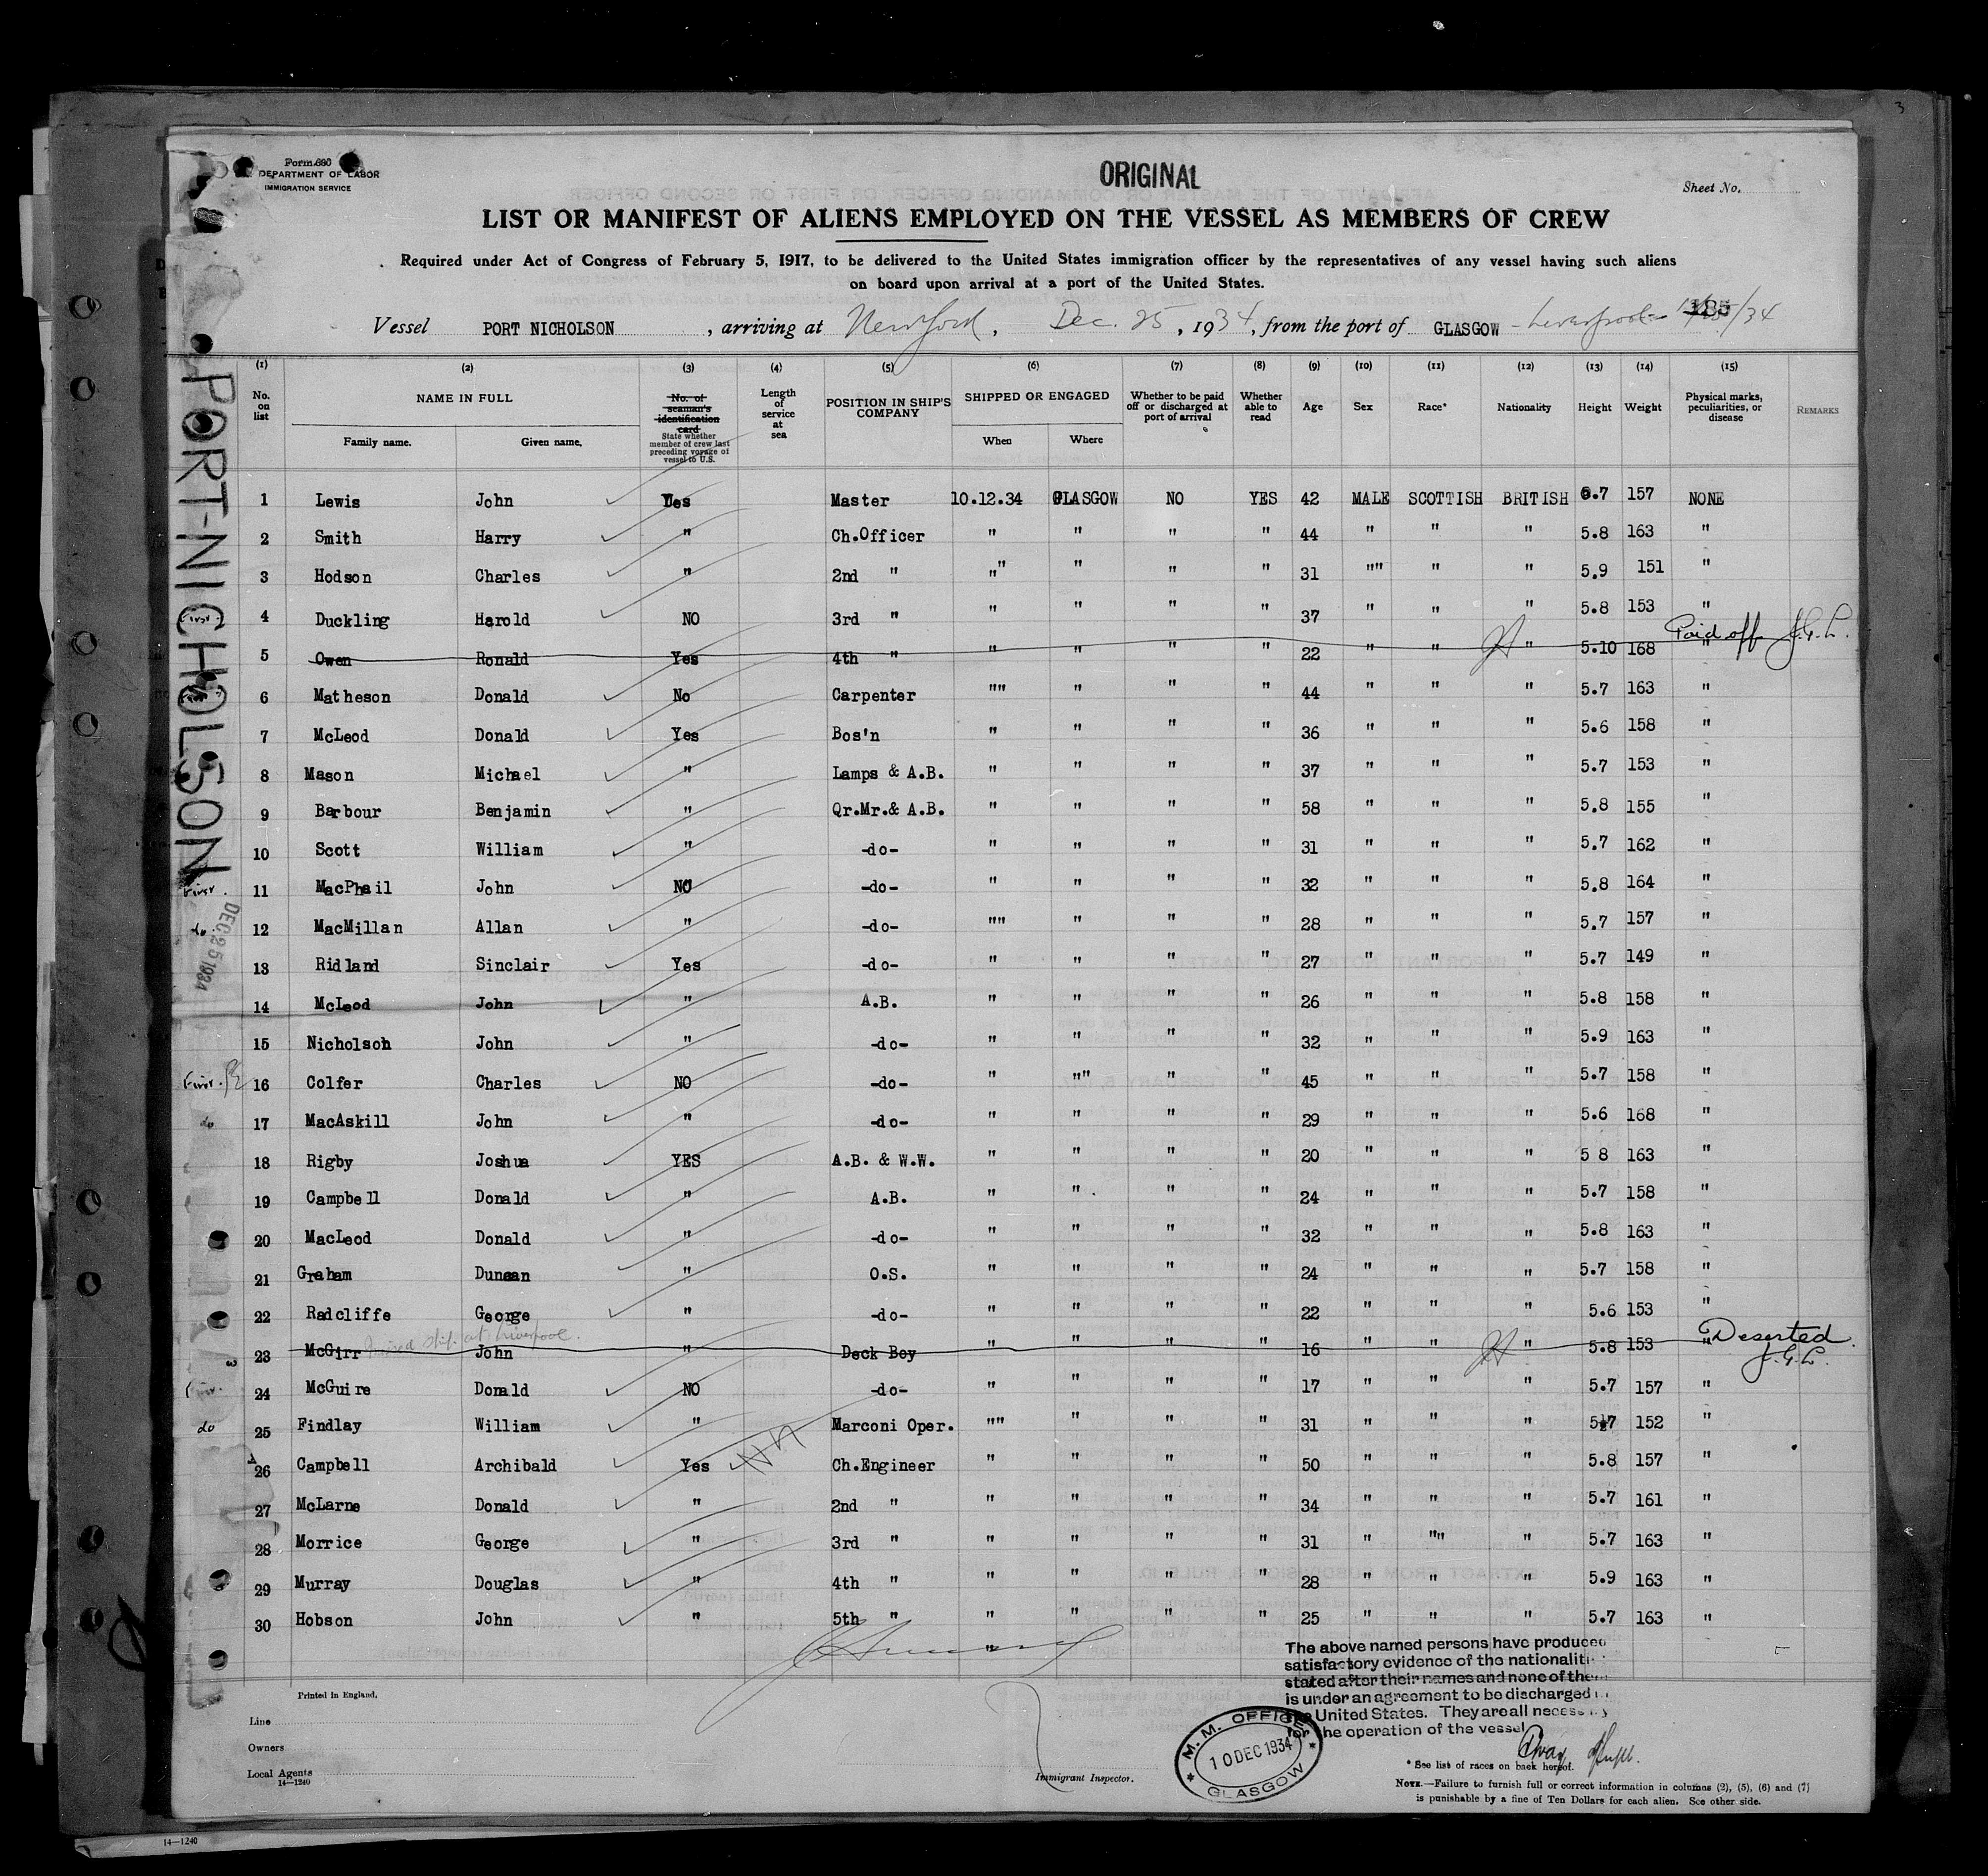 3
Form 680
DEPARTMENT OF LABOR
IMMIGRATION SERVICE
ORIGINAL
Sheet No.
LIST OR MANIFEST OF ALIENS EMPLOYED ON THE VESSEL AS MEMBERS OF CREW
Required under Act of Congress of February 5, 1917, to be delivered to the United States immigration officer by the representatives of any vessel having such aliens
on board upon arrival at a port of the United States.
Vessel PORT NICHOLSON , arriving at New York , Dec. 25 , 1934, from the port of GLASGOW - Liverpool /34
PORT-NICHOLSON
DEC 25 1934
(1) (2) (3) (4) (5) (6) (7) (8) (9) (10) (11) (12) (13) (14) (15)
No. on list NAME IN FULL Family name. Given name. No. of seaman's identification card State whether member of crew last preceding voyage of vessel to U.S. Length of service at sea POSITION IN SHIP'S COMPANY SHIPPED OR ENGAGED When Where Whether to be paid off or discharged at port of arrival Whether able to read Age Sex Race* Nationality Height Weight Physical marks, peculiarities, or disease REMARKS
1 Lewis John Yes Master 10.12.34 GLASGOW NO YES 42 MALE SCOTTISH BRITISH 5.7 157 NONE
2 Smith Harry " Ch.Officer " " " " 44 " " " 5.8 163 "
3 Hodson Charles " 2nd " "" " " " 31 "" " " 5.9 151 "
First. 4 Duckling Harold NO 3rd " " " " " 37 " " " 5.8 153 "
5 Owen Ronald Yes 4th " " " " " 22 " " " 5.10 168 " Paid off J.G.L.
6 Matheson Donald No Carpenter "" " " " 44 " " " 5.7 163 "
7 McLeod Donald Yes Bos'n " " " " 36 " " " 5.6 158 "
8 Mason Michael " Lamps & A.B. " " " " 37 " " " 5.7 153 "
9 Barbour Benjamin " Qr.Mr.& A.B. " " " " 58 " " " 5.8 155 "
10 Scott William " -do- " " " " 31 " " " 5.7 162 "
First. 11 MacPhail John NO -do- " " " " 32 " " " 5.8 164 "
do. 12 MacMillan Allan " -do- "" " " " 28 " " " 5.7 157 "
13 Ridland Sinclair Yes -do- " " " " 27 " " " 5.7 149 "
14 McLeod John " A.B. " " " " 26 " " " 5.8 158 "
15 Nicholson John " -do- " " " " 32 " " " 5.9 163 "
First. 16 Colfer Charles NO -do- " "" " " 45 " " " 5.7 158 "
do 17 MacAskill John " -do- " " " " 29 " " " 5.6 168 "
18 Rigby Joshua YES A.B. & W.W. " " " " 20 " " " 5 8 163 "
19 Campbell Donald " A.B. " " " " 24 " " " 5.7 158 "
20 MacLeod Donald " -do- " " " " 32 " " " 5.8 163 "
21 Graham Duncan " O.S. " " " " 24 " " " 5.7 158 "
22 Radcliffe George " -do- " " " " 22 " " " 5.6 153 "
23 McGirr missed ship at Liverpool. John " Deck Boy " " " " 16 " " " 5.8 153 " Deserted J.G.L.
First. 24 McGuire Donald NO -do- " " " " 17 " " " 5.7 157 "
do 25 Findlay William " Marconi Oper. "" " " " 31 " " " 5.7 152 "
26 Campbell Archibald Yes Ch.Engineer " " " " 50 " " " 5.8 157 "
27 McLarne Donald " 2nd " " " " " 34 " " " 5.7 161 "
28 Morrice George " 3rd " " " " " 31 " "" " 5.7 163 "
29 Murray Douglas " 4th " " " " " 28 " " " 5.9 163 "
30 Hobson John " 5th " " " " " 25 " " " 5.7 163 "
"
The above named persons have produced
satisfactory evidence of the nationaliti
stated after their names and none of the
is under an agreement to be discharged
United States. They are all necess y
for the operation of the vessel
Printed in England.
Line
Owners
Local Agents
14—1240
Immigrant Inspector.
M. M. OFFICE
10 DEC 1934
GLASGOW
* See list of races on back hereof.
NOTE.—Failure to furnish full or correct information in columns (2), (5), (6) and (7)
is punishable by a fine of Ten Dollars for each alien. See other side.
14—1240